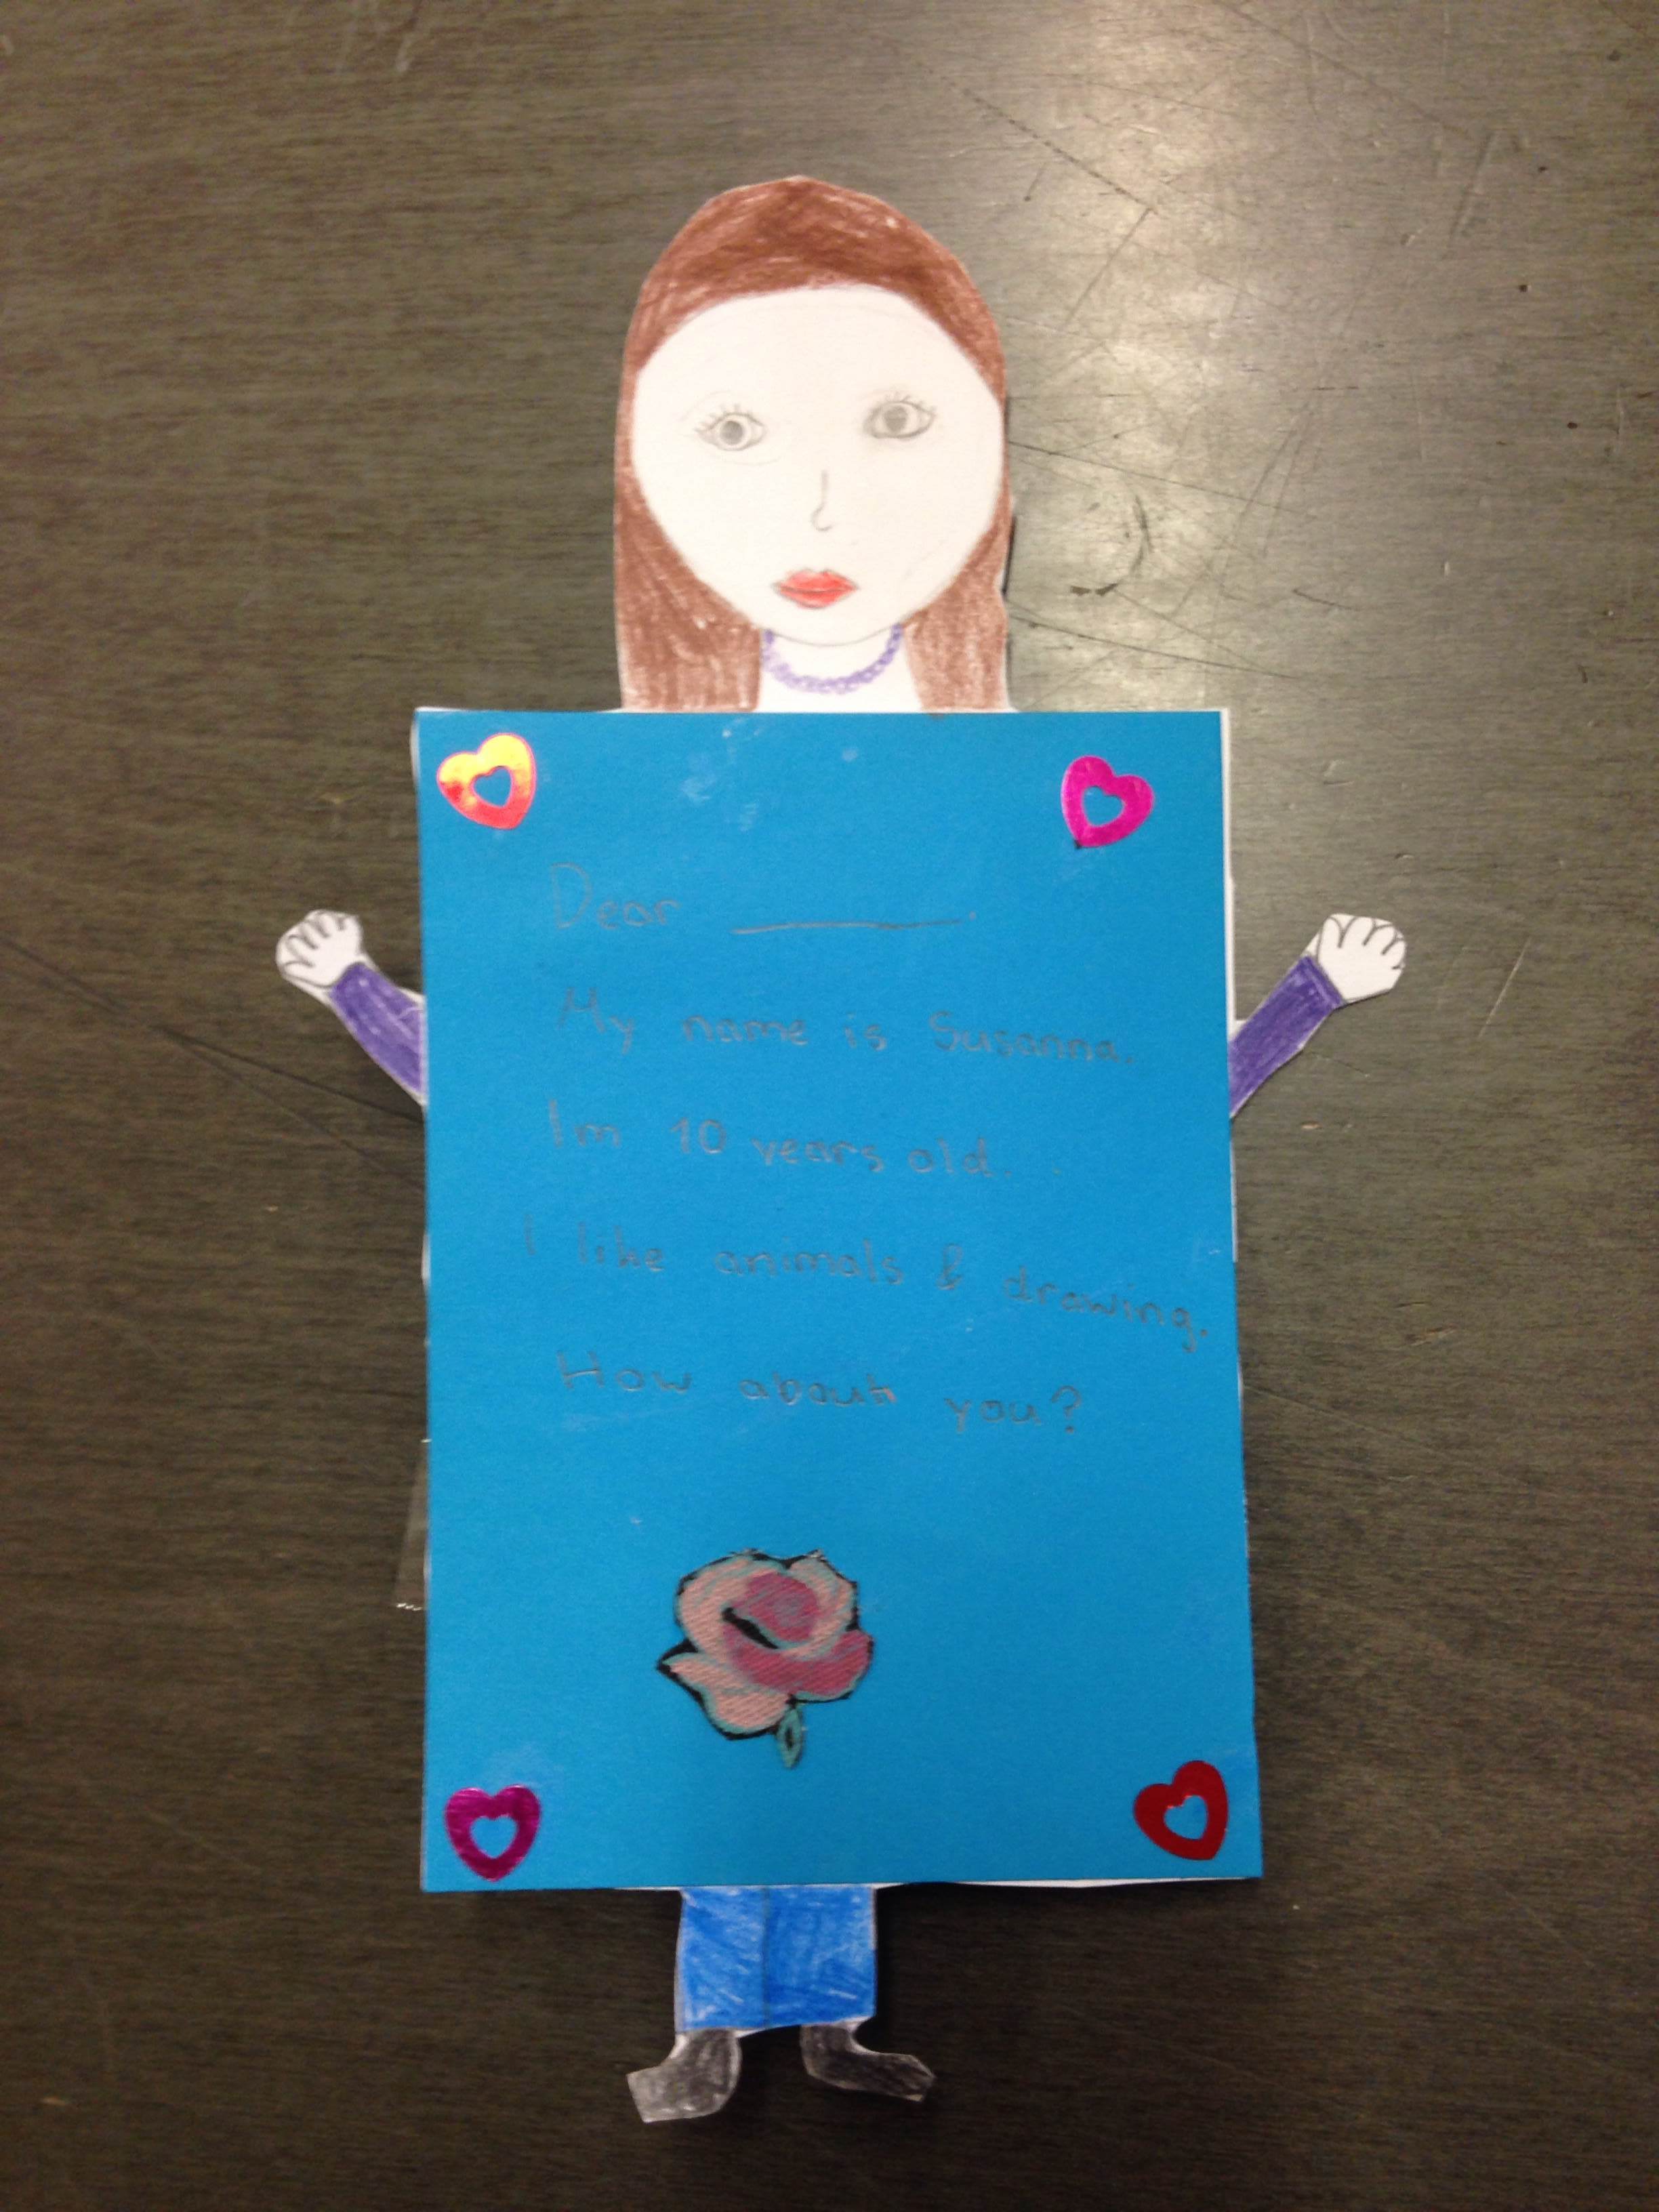 Dear ______.
My name is Susanna.
Im 10 years old.
I like animals & drawing.
How about you?